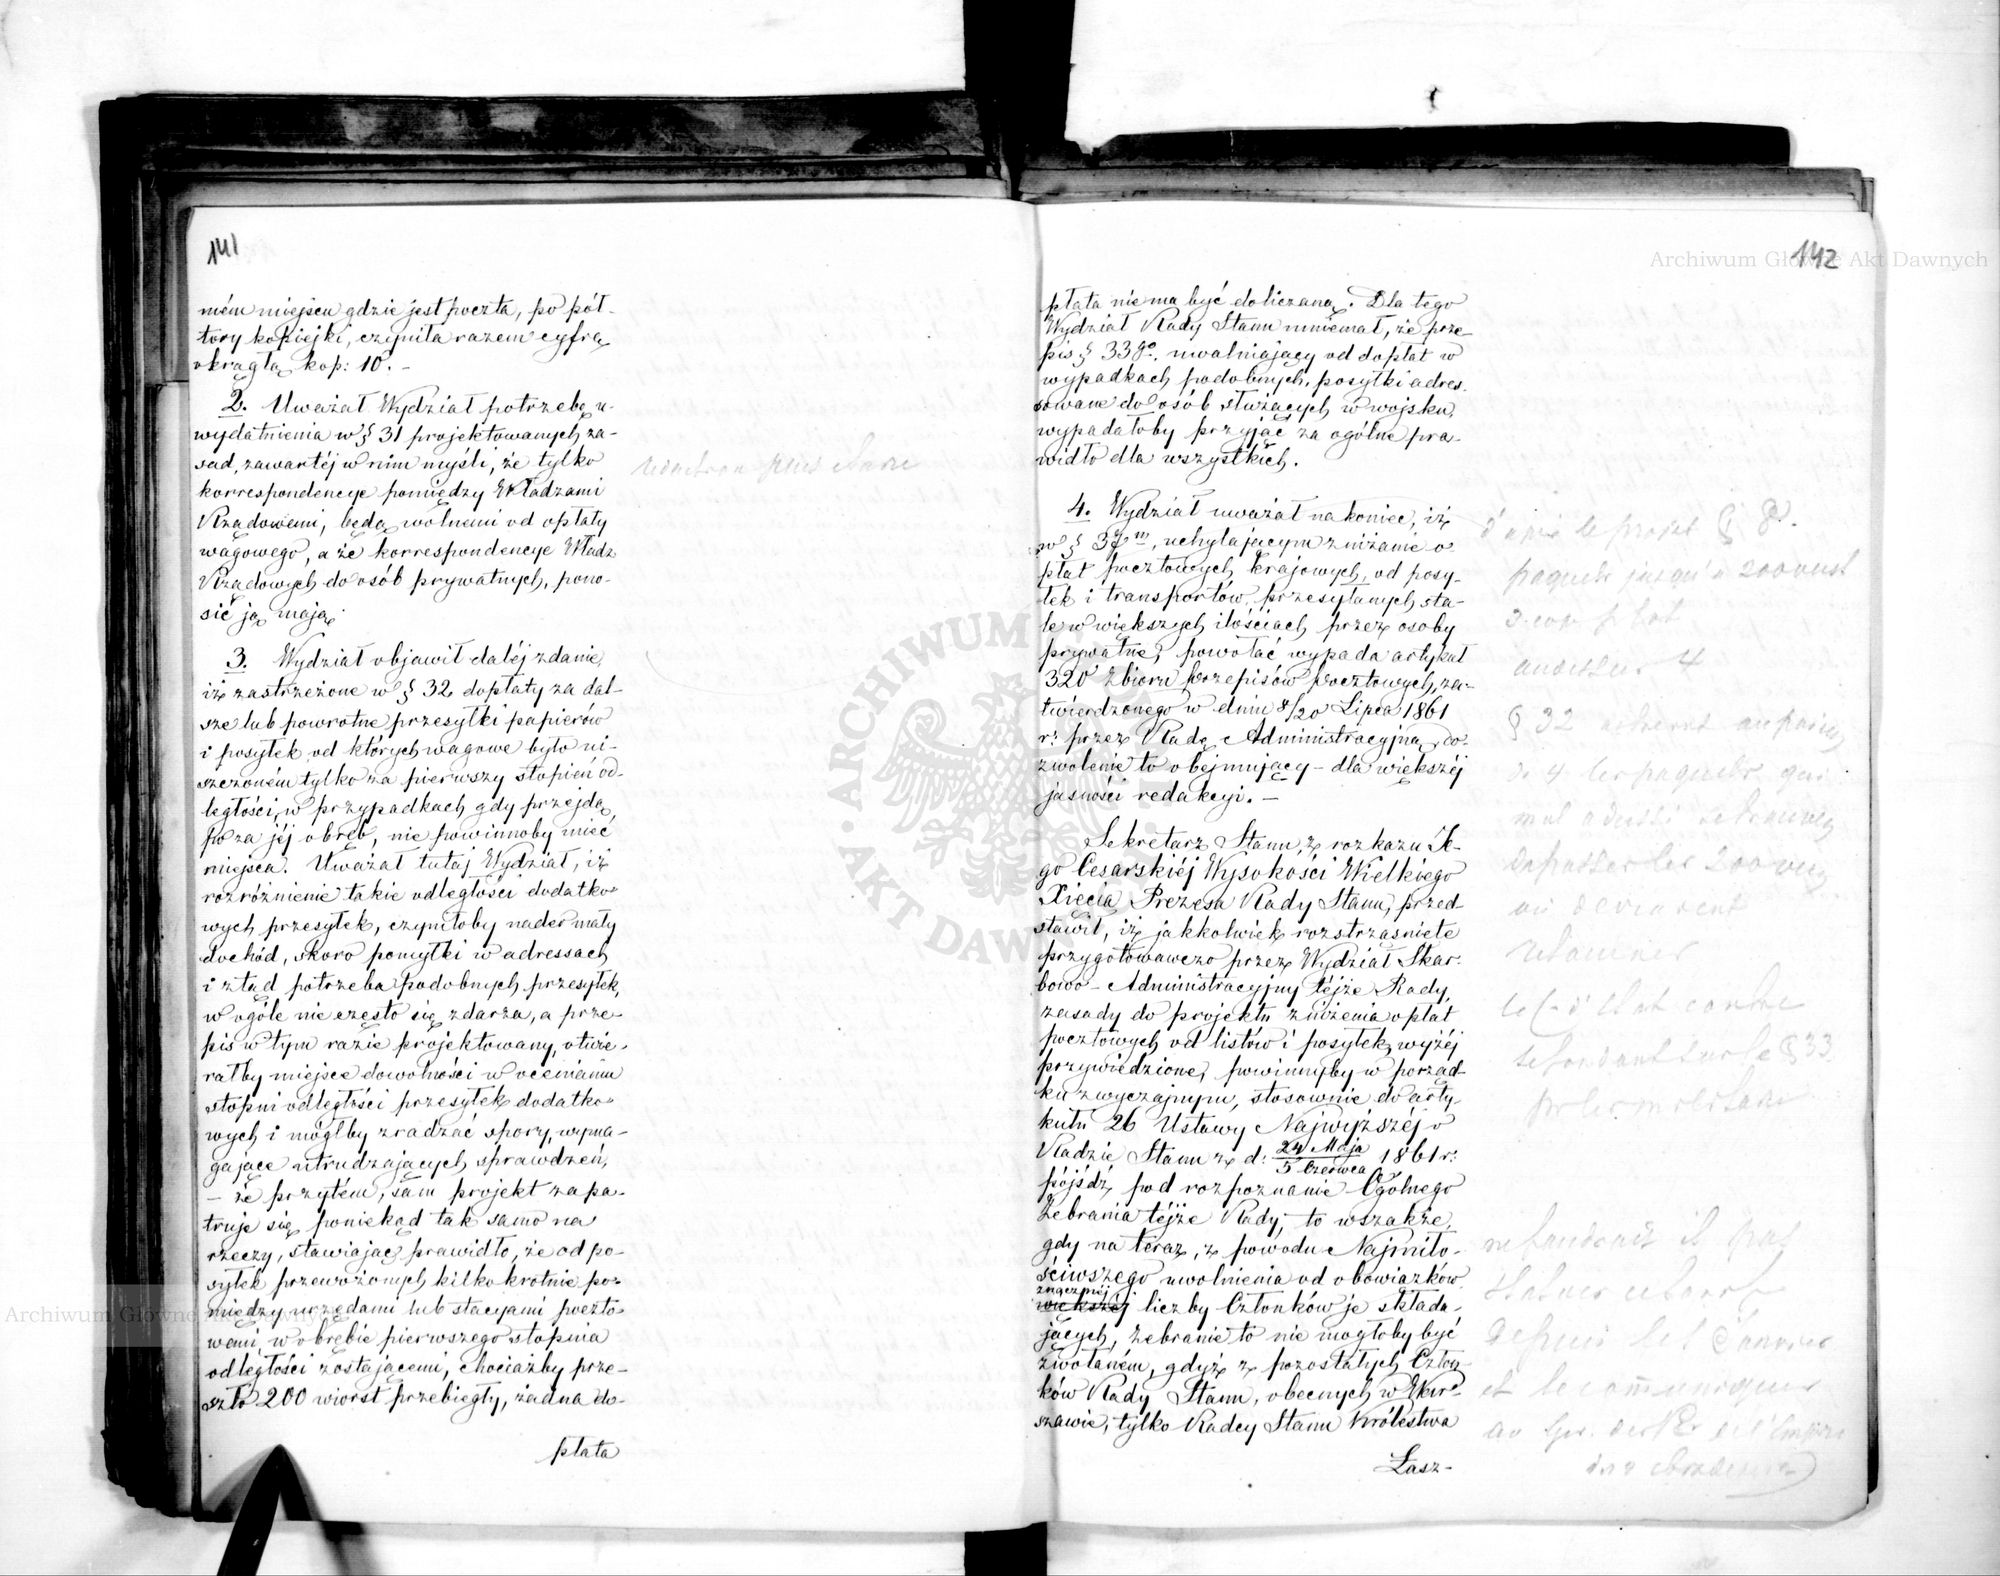 141
ném miejscu gdzie jest poczta, po pół-
tory kopiejki, czyniła razem cyfrę
okrągłą kop: 10. –
2. Uważał Wydział potrzebę u-
wydatnienia w § 31 projektowanych za-
sad, zawartéj w nim myśli, że tylko
korrespondencye pomiędzy Władzami
Rządowemi, będą wolnemi od opłaty
wagowego, a że korrespondencye Władz
Rządowych do osób prywatnych, pono-
sić ją mają.
3. Wydział objawił daléj zdanie,
iż zastrzeżone w § 32 dopłaty za dal-
sze lub powrotne przesyłki papierów
i posyłek od których wagowe było ui-
szczoném tylko za pierwszy stopień od-
ległości, w przypadkach gdy przejdą
po za jéj obręb, nie powinnoby mieć
miejsca. Uważał tutaj Wydział, iż
rozróżnienie takie odległości dodatko-
wych przesyłek, czyniłoby nader mały
dochód, skoro pomyłki w adressach
i ztąd potrzeba podobnych przesyłek,
w ogóle nie często się zdarza, a prze-
pis w tym razie projektowany, otwie-
rałby miejsce dowolności w ocenianiu
stopni odległości przesyłek dodatko-
wych i mógłby zradzać spory, wyma-
gające utrudzających sprawdzeń,
– że przytém, sam projekt zapa-
truje się poniekąd tak samo na
rzeczy, stawiając prawidło, że od po-
syłek przewożonych kilkokrotnie po-
między urzędami lub stacyami poczto-
wemi, w obrębie pierwszego stopnia
odległości zostającemi, chociażby prze-
szło 200 wiorst przebiegły, żadna do-
płata
redaction plus claire
142
płata nie ma być doliczaną. Dla tego
Wydział Rady Stanu mniemał, że prze-
pis § 33go, uwalniający od dopłat w
wypadkach podobnych, posyłki adres-
sowane do osób służących w wojsku,
wypadałoby przyjąć za ogólne pra-
widło dla wszystkich.
4. Wydział uważał nakoniec, iż
w § 37m, uchylającym zniżanie o-
płat pocztowych krajowych, od posy-
łek i transportów, przesyłanych sta-
le w większych ilościach przez osoby
prywatne, powołać wypada artykuł
320 Zbioru Przepisów Pocztowych, za-
twierdzonego w dniu 8/20 Lipca 1861
r: przez Radę Administracyjną, do-
zwolenie to obejmujący – dla większéj
jasności redakcyi. –
Sekretarz Stanu, z rozkazu Je-
go Cesarskiéj Wysokości Wielkiego
Xięcia Prezesa Rady Stanu, przed-
stawił, iż jakkolwiek roztrząśnięte
przygotowawczo przez Wydział Skar-
bowo-Administracyjny téjże Rady,
zasady do projektu zniżenia opłat
pocztowych od listów i posyłek, wyżéj
przywiedzione, powinnyby w porząd-
ku zwyczajnym, stosownie do arty-
kułu 26 Ustawy Najwyższéj o
Radzie Stanu z d: 24 Maja/5 Czerwca 1861 r:
pójśdź pod rozpoznanie Ogólnego
Zebrania téjże Rady, to wszakże,
gdy na teraz, z powodu Najmiło-
ściwszego uwolnienia od obowiązków
znacznéj
większéj liczby Członków je składa-
jących, zebranie to nie mogłoby być
zwołaném, gdyż z pozostałych Człon-
ków Rady Stanu, obecnych w War-
szawie, tylko Radcy Stanu Królestwa
Łasz-
d'après le projet § 8.
3 cop p lot
§ 32
le C. d'Etat
§ 33